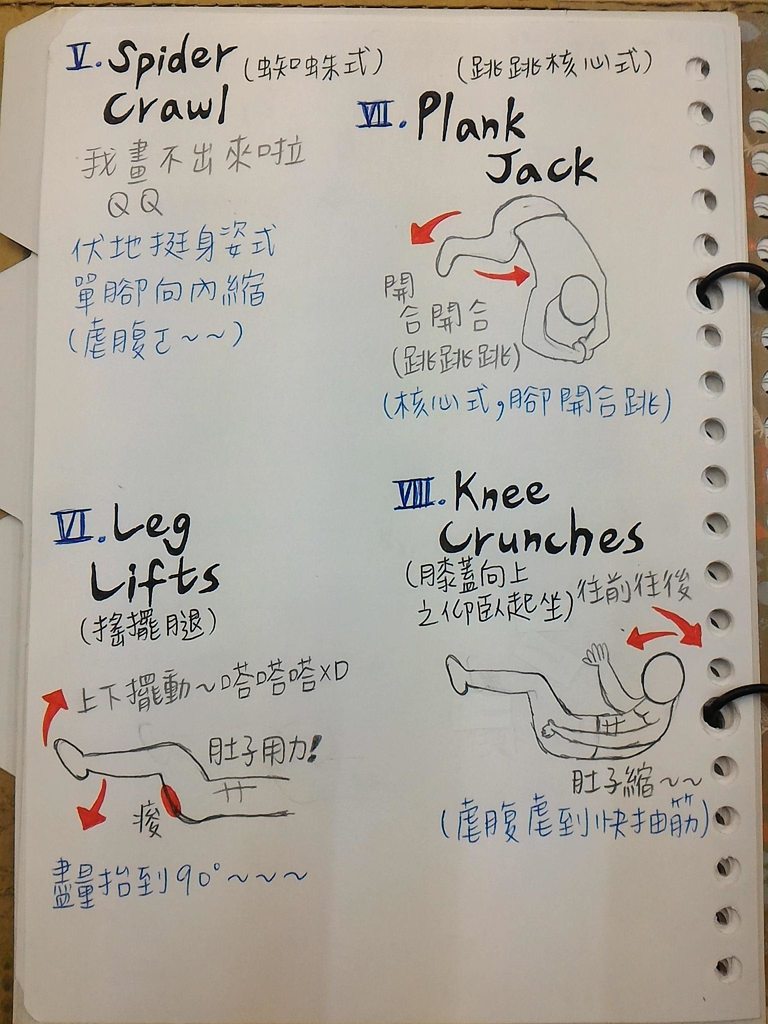 V. Spider (蜘蛛式)
Crawl
我畫不出來啦
QQ
伏地挺身姿式
單腳向內縮
(虐腹ㄛ~~)
VI. Leg
Lifts
(搖擺腿)
上下擺動~嗒嗒嗒XD
肚子用力!
痠
盡量抬到90°~~~
(跳跳核心式)
VII. Plank
Jack
開
合開合
(跳跳跳)
(核心式,腳開合跳)
VIII. Knee
Crunches
(膝蓋向上
之仰臥起坐)
往前往後
肚子縮~~
(虐腹虐到快抽筋)